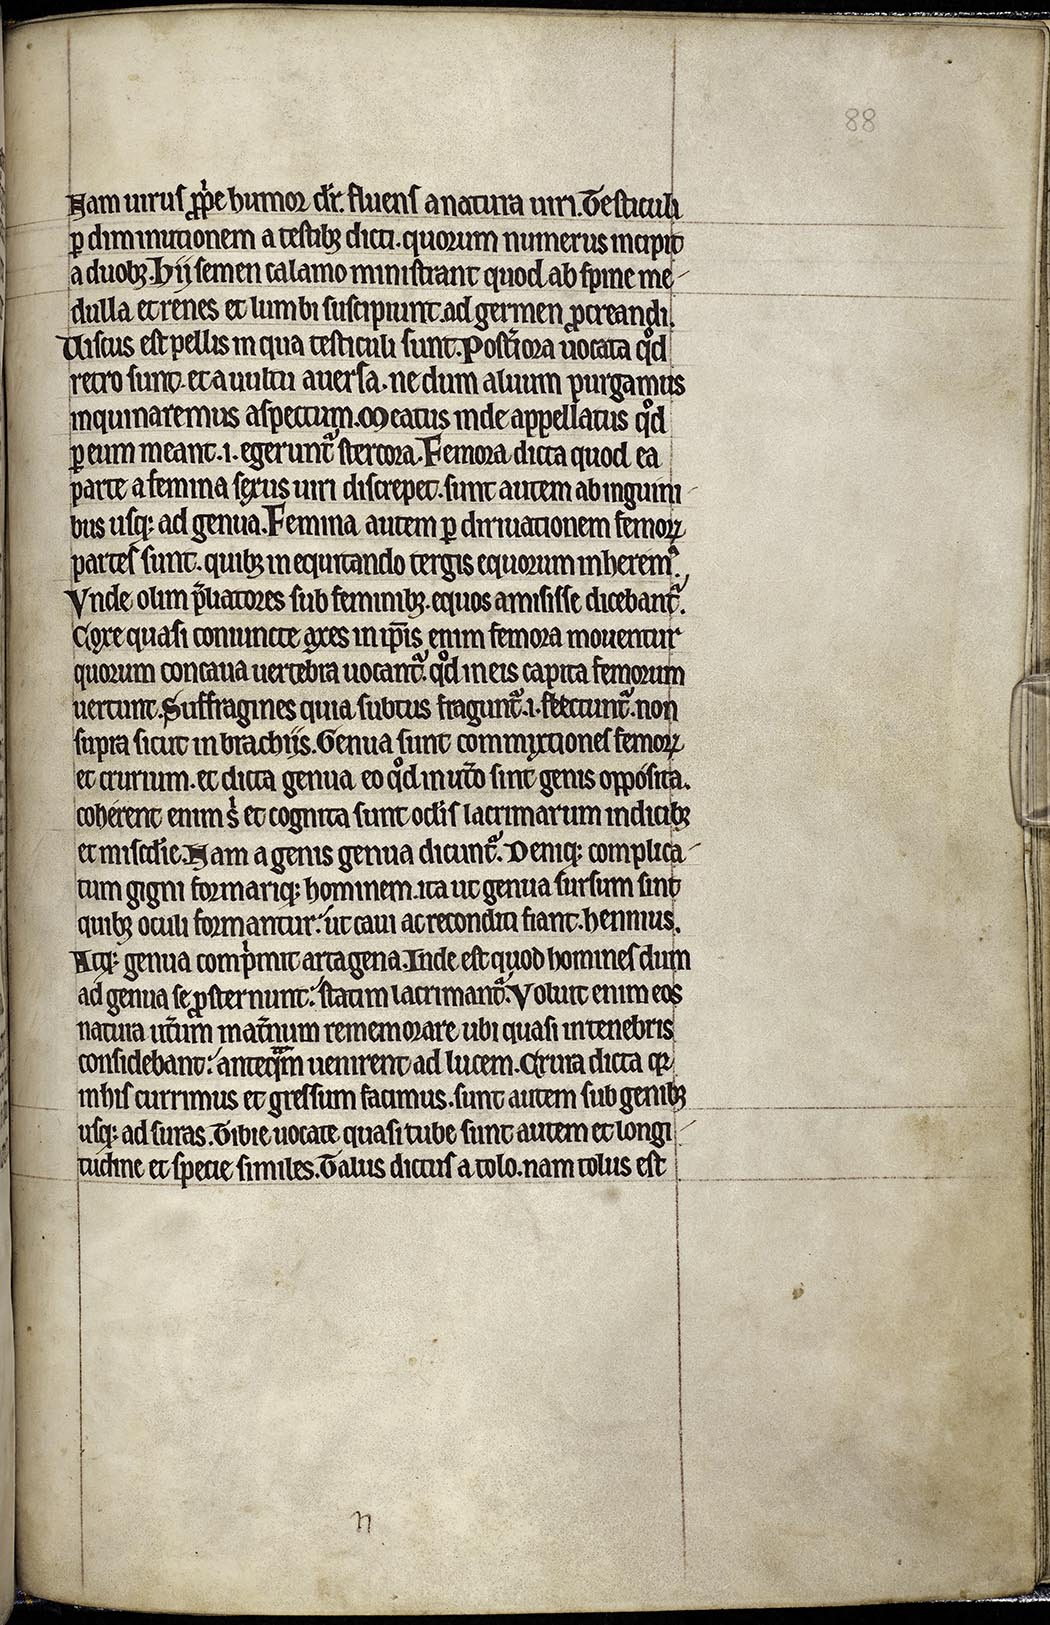 88
Nam uirus p̄p̄e humor dr̄. fluens a natura uiri. Testiculi
ꝑ diminutionem a testibꝫ dicti. quorum numerus incipit
a duobꝫ. Hij semen calamo ministrant quod ab spine me-
dulla et renes et lumbi suscipiunt. ad germen ꝓcreandi.
Uiscus est pellis in qua testiculi sunt. Post̄iora uocata qͦd
retro sunt. et a uultu auersa. ne dum aluum purgamus
inquinaremus aspectum. Meatus inde appellatus qͦd
ꝑ eum meant .i. egerunt᷑ stercora. Femora dicta quod ea
parte a femina sexus uiri discrepet. sunt autem ab inguini-
bus usqꝫ ad genua. Femina autem ꝑ diriuationem femoꝝ
partes sunt. quibꝫ in equitando tergis equorum inheremꝰ.
Vnde olim p̄liatores sub feminibꝫ. equos amisisse dicebant᷑.
Coxe quasi coniuncte axes in ip̄is enim femora mouentur
quorum concaua uertebra uocant᷑. qͦd in eis capita femorum
uertunt. Suffragines quia subtus fragunt᷑ .i. flectunt᷑. non
supra sicut in brachijs. Genua sunt commixtiones femoꝝ
et crurium. et dicta genua eo qͦd in ut̄o sint genis opposita.
coherent enim sͥ et cognita sunt oc̄lis lacrimarum indicibꝫ
et misc̄die. Nam a genis genua dicunt᷑. Deniqꝫ complica-
tum gigni formariqꝫ hominem. ita ut genua sursum sint
quibꝫ oculi formantur: ut caui ac reconditi fiant. hennius.
Atqꝫ genua comp̄mit arta gena. Inde est quod homines dum
ad genua se ꝓsternunt: statim lacrimant᷑. Voluit enim eos
natura ut̄um mat̄num rememorare ubi quasi in tenebris
considebant: anteqᷓm uenirent ad lucem. Crura dicta qꝛ
in his currimus et gressum facimus. sunt autem sub genibꝫ
usqꝫ ad suras. Tibie uocate quasi tube sunt autem et longi-
tudine et specie similes. Talus dictus a tolo. nam tolus est
n